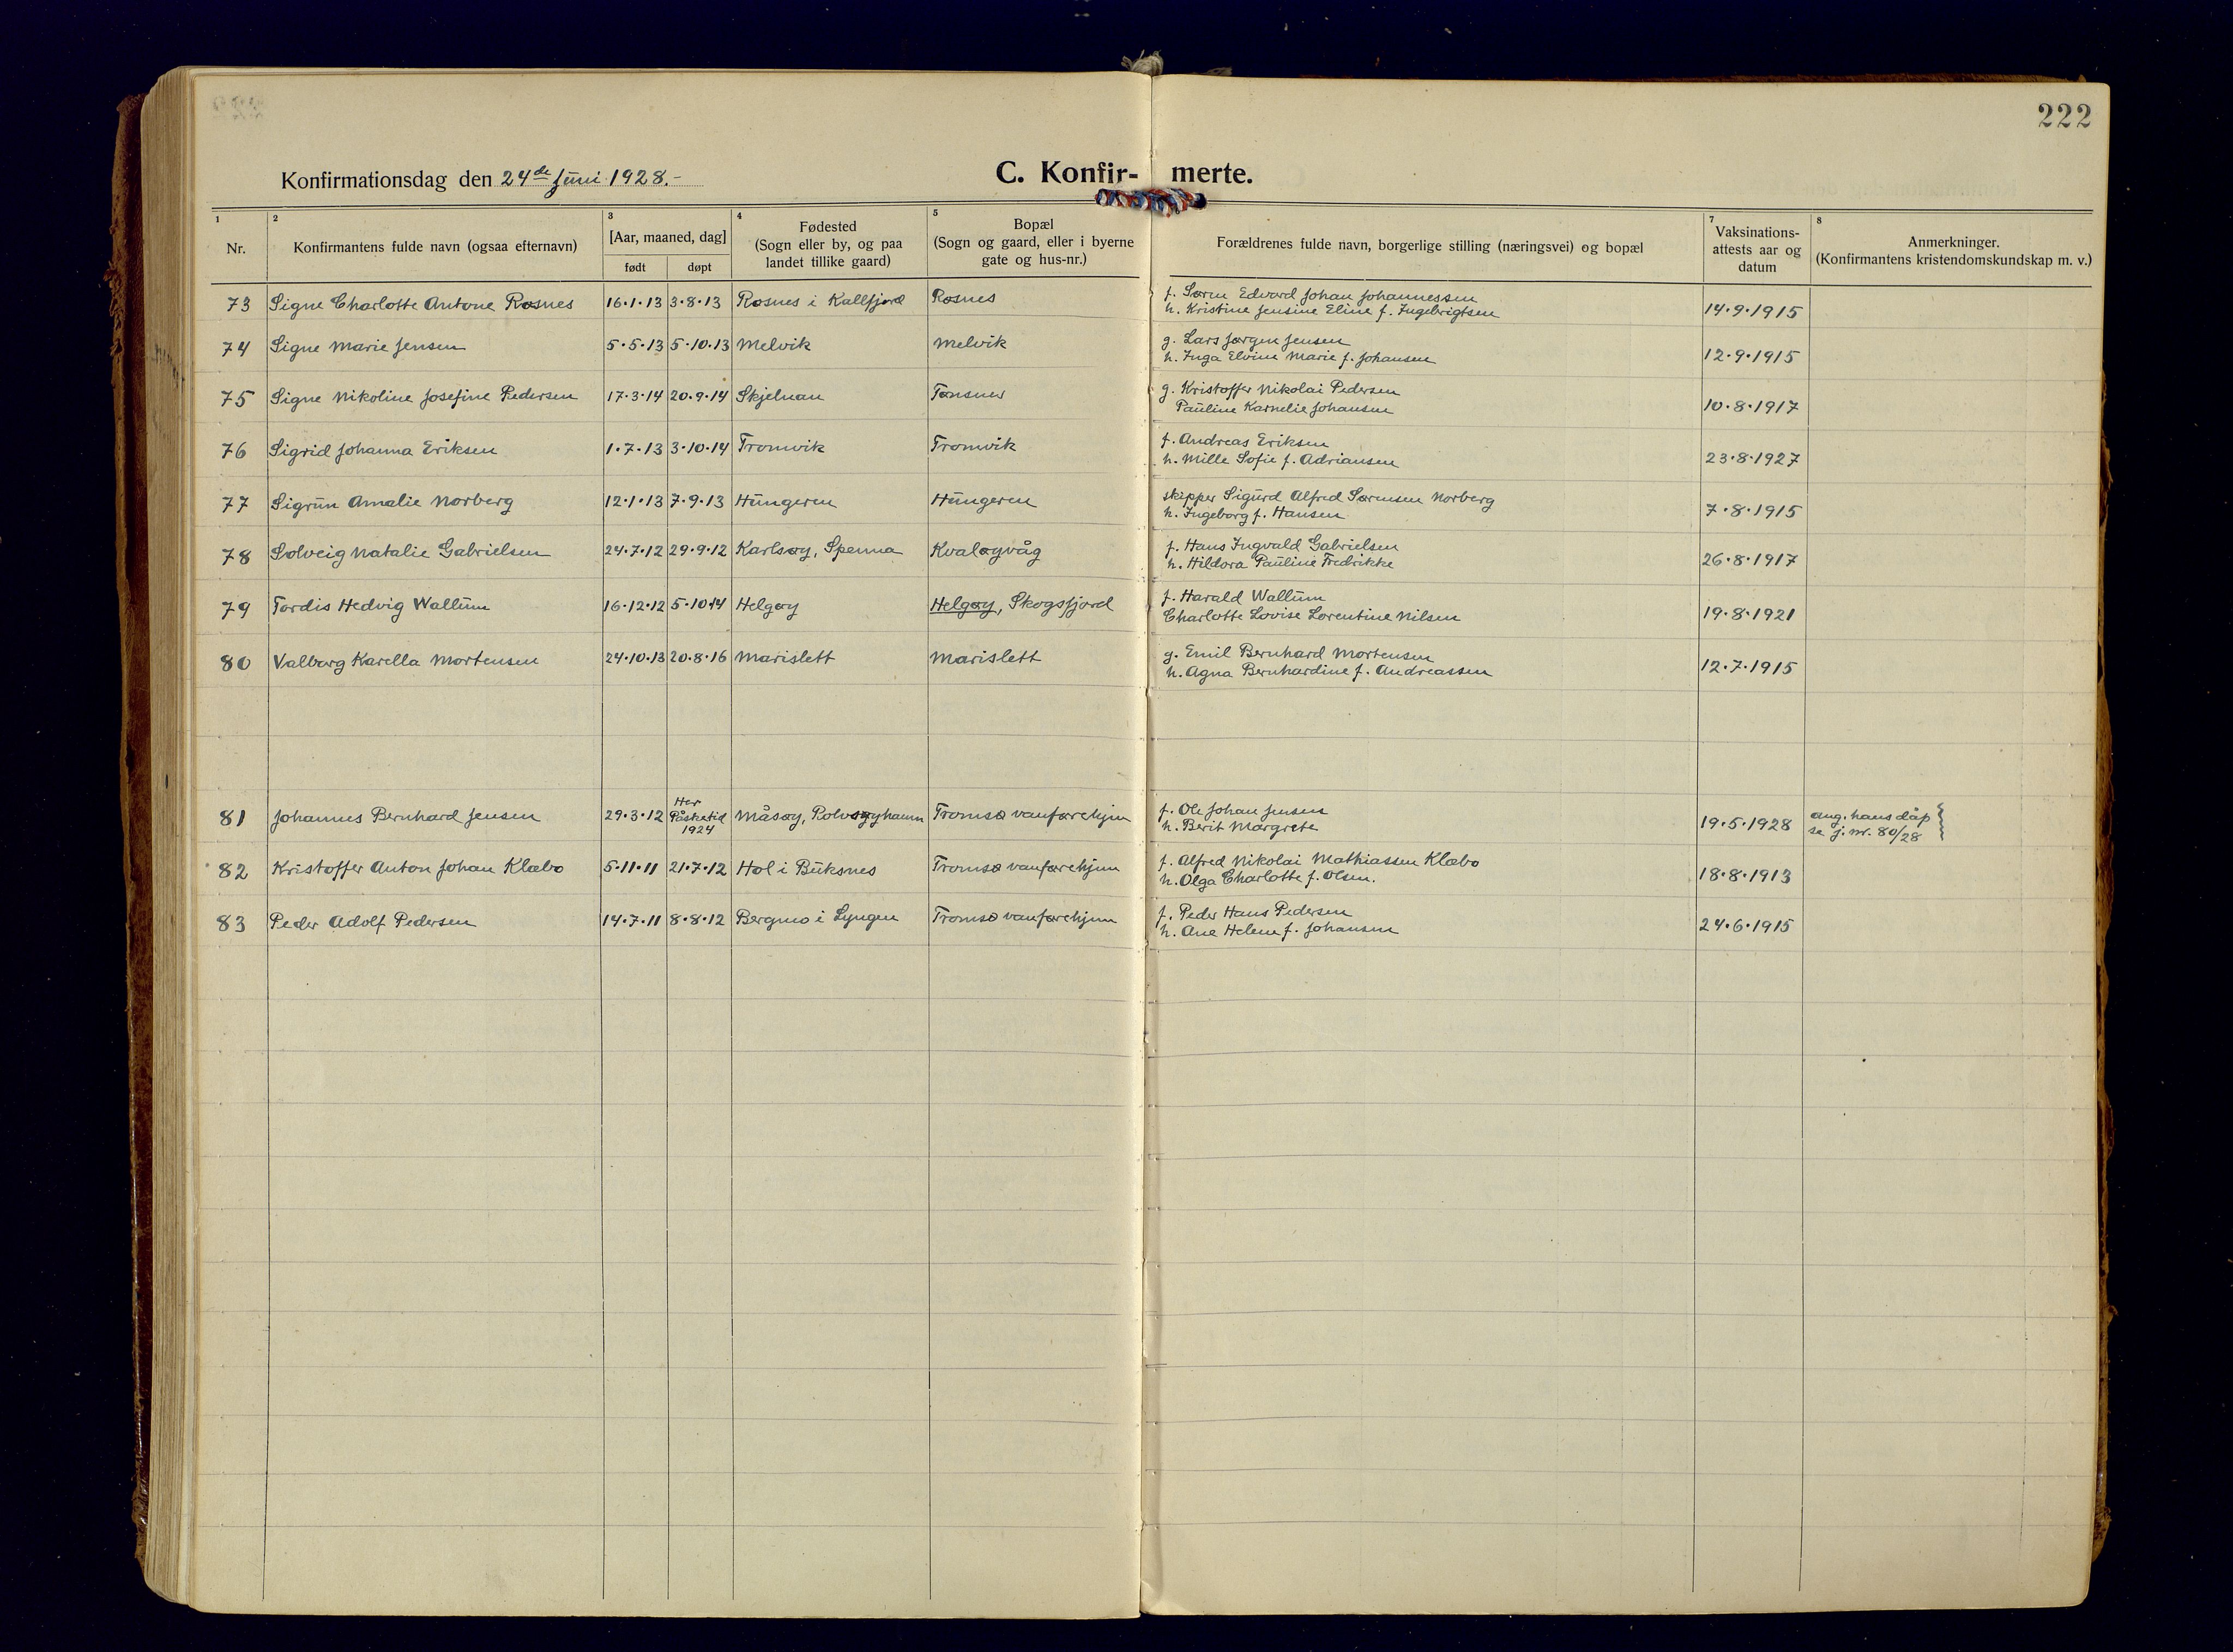 222
Konfirmationsdag den 24de Juni 1928.-
C. Konfir- merte.
1 2 3 4 5 7 8
Nr. Konfirmantens fulde navn (ogsaa efternavn) [Aar, maaned, dag] født døpt Fødested (Sogn eller by, og paa landet tillike gaard) Bopæl (Sogn og gaard, eller i byerne gate og hus-nr.) Forældrenes fulde navn, borgerlige stilling (næringsvei) og bopæl Vaksinations-attests aar og datum Anmerkninger. (Konfirmantens kristendomskundskap m. v.)
73 Signe Charlotte Antone Røsnes 16.1.13 3.8.13 Røsnes i Kallfjord Røsnes f. Søren Edvard Johan Johannessen
h. Kristine Jensine Eline f. Ingebrigtsen 14.9.1915
74 Signe Marie Jensen 5.5.13 5.10.13 Melvik Melvik g. Lars Jørgen Jensen
h. Inga Elvine Marie f. Johansen 12.9.1915
75 Signe Nikoline Josefine Pedersen 17.3.14 20.9.14 Skjelnan Tønsnes g. Kristoffer Nikolai Pedersen
Pauline Karnelie Johansen 10.8.1917
76 Sigrid Johanna Eriksen 1.7.13 3.10.14 Tromvik Tromvik f. Andreas Eriksen
h. Mille Sofie f. Adriansen 23.8.1927
77 Sigrun Amalie Norberg 12.1.13 7.9.13 Hungeren Hungeren skipper Sigurd Alfred Sørensen Norberg
h. Ingeborg f. Hansen 7.8.1915
78 Solveig Natalie Gabrielsen 24.7.12 29.9.12 Karlsøy, Spenna Kvaløyvåg f. Hans Ingvald Gabrielsen
h. Hildora Pauline Fredrikke 26.8.1917
79 Tordis Hedvig Wallum 16.12.12 5.10.14 Helgøy Helgøy, Skogsfjord f. Harald Wallum
Charlotte Lovise Lorentine Nilsen 19.8.1921
80 Valborg Karella Mortensen 24.10.13 20.8.16 Marislett Marislett g. Emil Bernhard Mortensen
h. Agna Bernhardine f. Andreassen 12.7.1915
81 Johannes Bernhard Jensen 29.3.12 Her Påsketid 1924 Måsøy, Rolvsøyhamn Tromsø vanførehjem f. Ole Johan Jensen
h. Berit Margrete 19.5.1928 ang. hans dåp
se j.nr. 80/28
82 Kristoffer Anton Johan Klæbo 5.11.11 21.7.12 Hol i Buksnes Tromsø vanførehjem f. Alfred Nikolai Mathiassen Klæbo
h. Olga Charlotte f. Olsen. 18.8.1913
83 Peder Adolf Pedersen 14.7.11 8.8.12 Bergmo i Lyngen Tromsø vanførehjem f. Peder Hans Pedersen
h. Ane Helene f. Johansen 24.6.1915